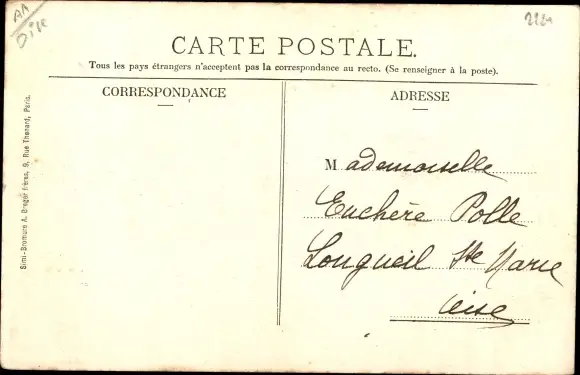 AA
Oise
CARTE POSTALE.
Tous les pays étrangers n'acceptent pas la correspondance au recto. (Se renseigner à la poste).
CORRESPONDANCE
ADRESSE
Mademoiselle
Euchère Polle
Longueil Ste Marie
Oise
Simi-Bromure A. Breger frères, 9, Rue Thenard, Paris.